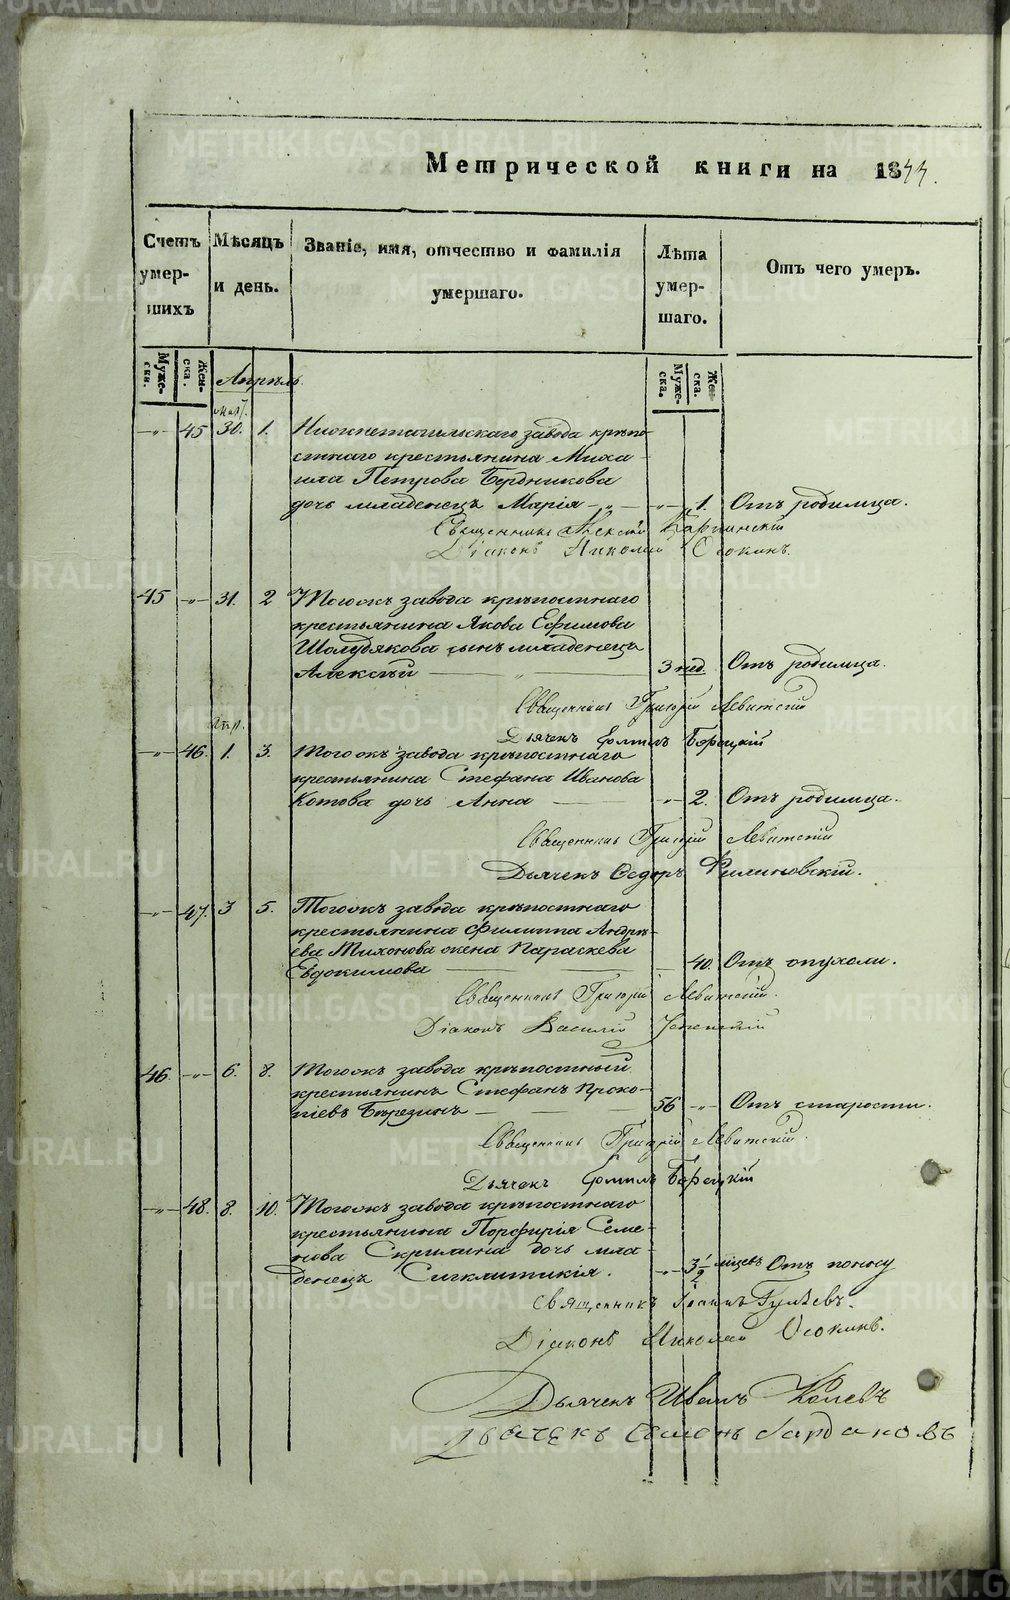 Метрической книги на 1844.
Счетъ умер- шихъ
Мѣсяцъ и день.
Званіе, имя, отчество и фамилія умершаго.
Лѣта умер- шаго.
Отъ чего умеръ.
Муже- ска. Жен- ска. Апрѣль Муже- ска. Жен- ска.
март.
-"- 45 30. 1. Нижнетагильскаго завода крѣпо-
стнаго крестьянина Миха-
ила Петрова Бердникова
дочь младенецъ Марія -"- -"- 1. Отъ родимца.
Священникъ Алексій Карпинскій
Діаконъ Николай Осокинъ.
45 -"- 31. 2 Тогожъ завода крѣпостнаго
крестьянина Якова Ефимова
Шолудякова сынъ младенецъ
Алексѣй 3 нед. Отъ родимца.
Священникъ Григорій Левитскій
Апр. Дьячекъ Борецкій
-"- 46. 1. 3. Тогожъ завода крѣпостнаго
крестьянина Стефана Иванова
Котова дочь Анна -"- 2. Отъ родимца.
Священникъ Григорій Левитскій
Дьячекъ Ѳедоръ Филиновскій.
-"- 47. 3 5. Тогожъ завода крѣпостнаго
крестьянина Филиппа Андрѣ-
ева Тихонова жена Параскева
Евдокимова 40. Отъ опухоли.
Священникъ Григорій Левитскій.
Діаконъ Василій Успенскій
46. -"- 6. 8. Тогожъ завода крѣпостный
крестьянинъ Стефанъ Проко-
піевъ Березинъ 56 -"- Отъ старости.
Священникъ Григорій Левитскій.
Дьячекъ Борецкій
-"- 48. 8. 10. Тогожъ завода крѣпостнаго
крестьянина Порфирія Семе-
нова Скрипина дочь мла-
денецъ Сигклитикія. -"- 3 1/2 мцевъ Отъ поносу
Священникъ Іоаннъ Гуляевъ.
Діаконъ Николай Осокинъ.
Дьячекъ Иванъ Колевъ
Дьячекъ Семенъ Бардаковъ
METRIKI.GASO-URAL.RU